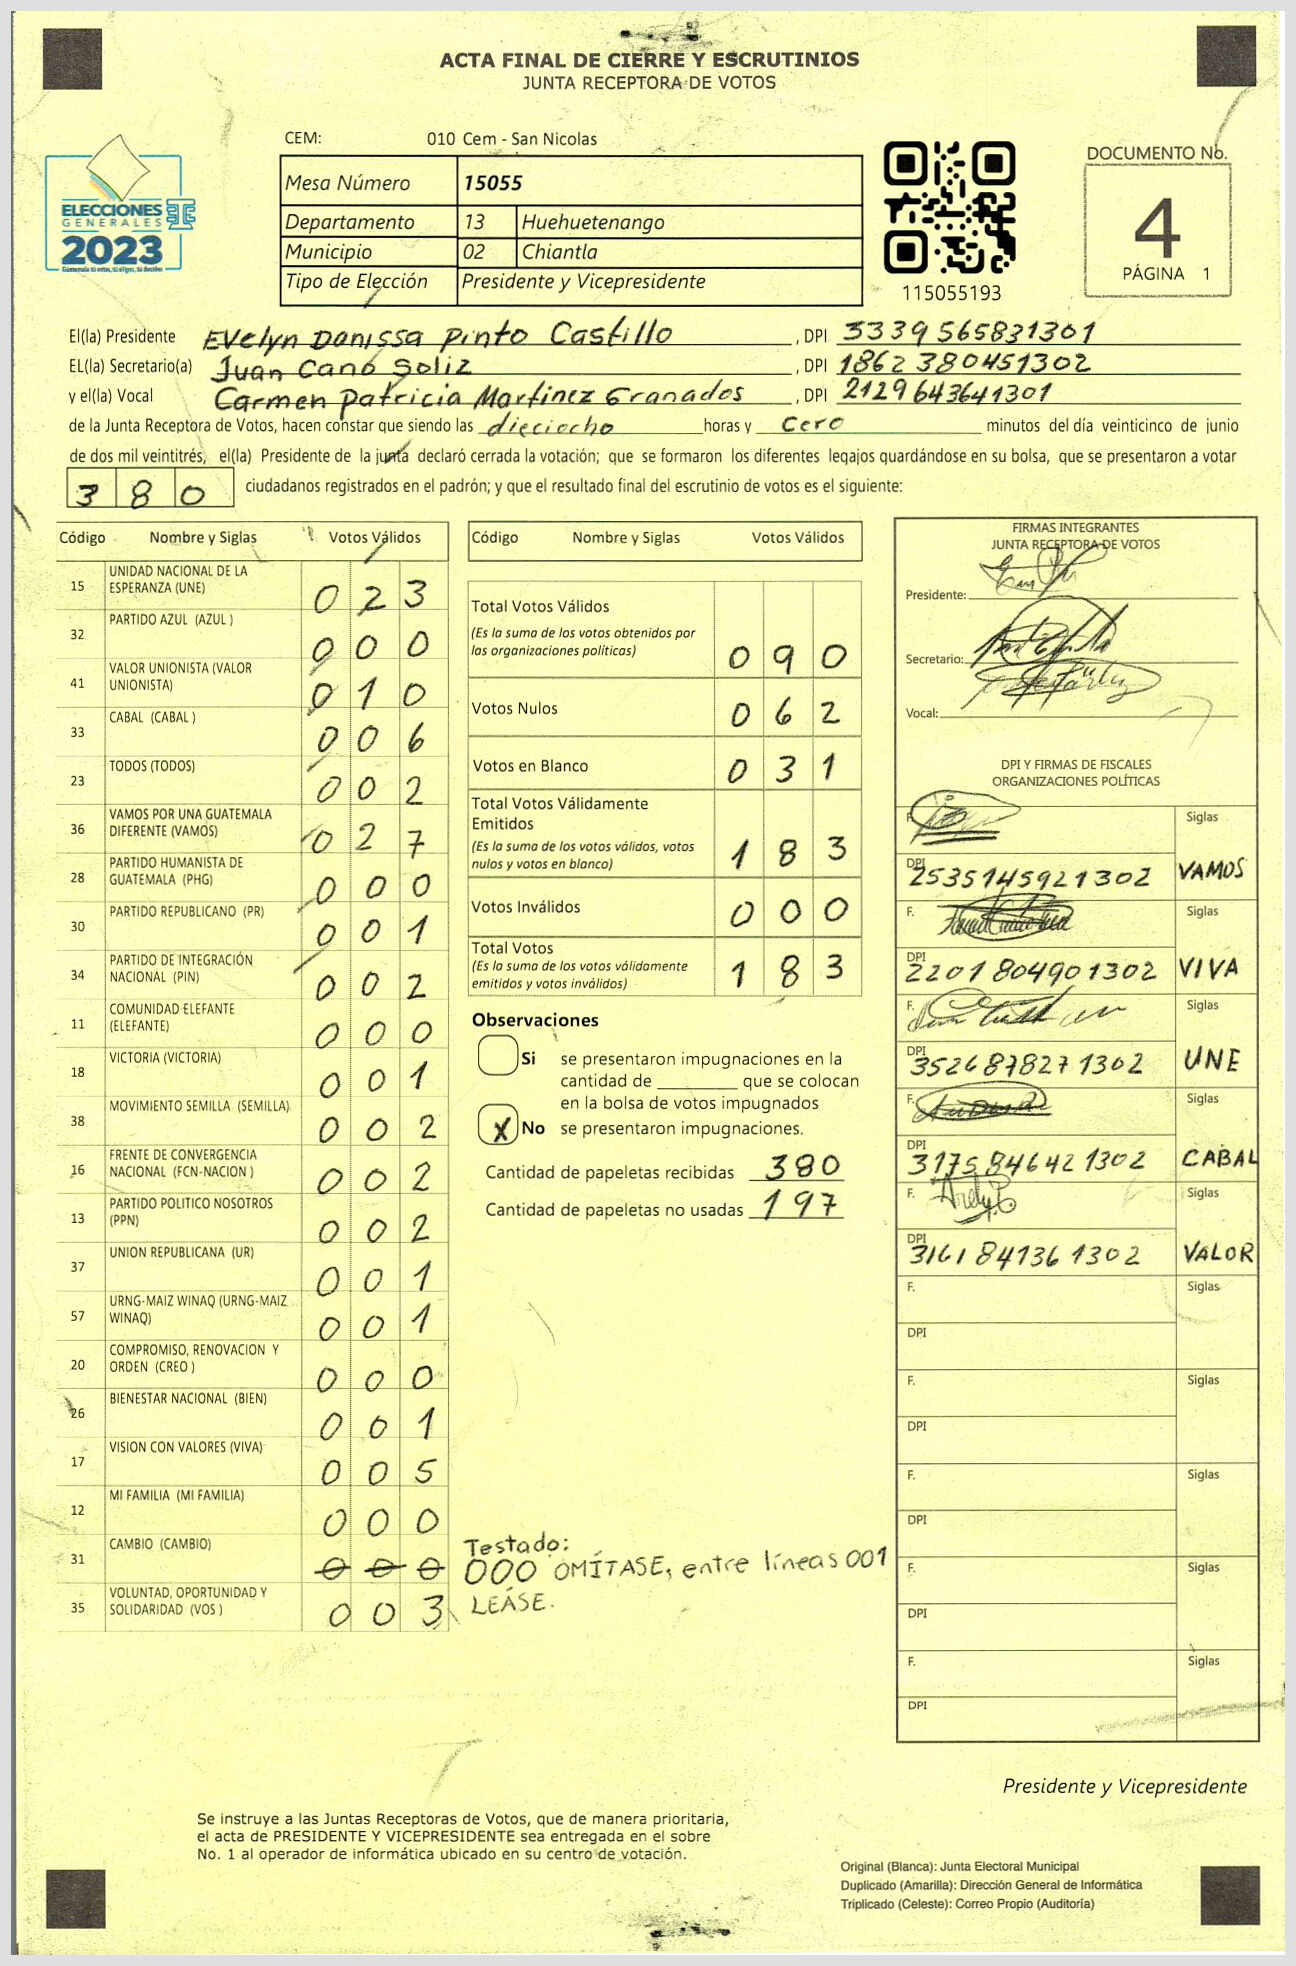 ACTA FINAL DE CIERRE Y ESCRUTINIOS
JUNTA RECEPTORA DE VOTOS
CEM: 010 Cem - San Nicolas
Mesa Número 15055
Departamento 13 Huehuetenango
Municipio 02 Chiantla
Tipo de Elección Presidente y Vicepresidente
ELECCIONES
GENERALES
2023
115055193
DOCUMENTO No.
4
PÁGINA 1
El(la) Presidente Evelyn Danissa Pinto Castillo , DPI 3339565831301
EL(la) Secretario(a) Juan Cano Soliz , DPI 1862380451302
y el(la) Vocal Carmen Patricia Martinez Granados , DPI 2129643641301
de la Junta Receptora de Votos, hacen constar que siendo las dieciocho horas y cero minutos del día veinticinco de junio
de dos mil veintitrés, el(la) Presidente de la junta declaró cerrada la votación; que se formaron los diferentes legajos quardándose en su bolsa, que se presentaron a votar
380 ciudadanos registrados en el padrón; y que el resultado final del escrutinio de votos es el siguiente:
Código Nombre y Siglas Votos Válidos
15 UNIDAD NACIONAL DE LA
ESPERANZA (UNE) 023
32 PARTIDO AZUL (AZUL ) 000
41 VALOR UNIONISTA (VALOR
UNIONISTA) 010
33 CABAL (CABAL ) 006
23 TODOS (TODOS) 002
36 VAMOS POR UNA GUATEMALA
DIFERENTE (VAMOS) 027
28 PARTIDO HUMANISTA DE
GUATEMALA (PHG) 000
30 PARTIDO REPUBLICANO (PR) 001
34 PARTIDO DE INTEGRACIÓN
NACIONAL (PIN) 002
11 COMUNIDAD ELEFANTE
(ELEFANTE) 000
18 VICTORIA (VICTORIA) 001
38 MOVIMIENTO SEMILLA (SEMILLA) 002
16 FRENTE DE CONVERGENCIA
NACIONAL (FCN-NACION ) 002
13 PARTIDO POLITICO NOSOTROS
(PPN) 002
37 UNION REPUBLICANA (UR) 001
57 URNG-MAIZ WINAQ (URNG-MAIZ
WINAQ) 001
20 COMPROMISO, RENOVACION Y
ORDEN (CREO ) 000
26 BIENESTAR NACIONAL (BIEN) 001
17 VISION CON VALORES (VIVA) 005
12 MI FAMILIA (MI FAMILIA) 000
31 CAMBIO (CAMBIO) 000
35 VOLUNTAD, OPORTUNIDAD Y
SOLIDARIDAD (VOS ) 003
Código Nombre y Siglas Votos Válidos
Total Votos Válidos
(Es la suma de los votos obtenidos por
las organizaciones políticas) 090
Votos Nulos 062
Votos en Blanco 031
Total Votos Válidamente
Emitidos
(Es la suma de los votos válidos, votos
nulos y votos en blanco) 183
Votos Inválidos 000
Total Votos
(Es la suma de los votos válidamente
emitidos y votos inválidos) 183
Observaciones
Si se presentaron impugnaciones en la
cantidad de ________ que se colocan
en la bolsa de votos impugnados
X No se presentaron impugnaciones.
Cantidad de papeletas recibidas 380
Cantidad de papeletas no usadas 197
Testado:
000 OMÍTASE, entre líneas 001
LEÁSE.
FIRMAS INTEGRANTES
JUNTA RECEPTORA DE VOTOS
Presidente:
Secretario:
Vocal:
DPI Y FIRMAS DE FISCALES
ORGANIZACIONES POLÍTICAS
F. Siglas
DPI 2535145921302 VAMOS
F. Siglas
DPI 2201804901302 VIVA
F. Siglas
DPI 3526878271302 UNE
F. Siglas
DPI 3175846421302 CABAL
F. Siglas
DPI 3161841361302 VALOR
F. Siglas
DPI
F. Siglas
DPI
F. Siglas
DPI
F. Siglas
DPI
F. Siglas
DPI
Presidente y Vicepresidente
Se instruye a las Juntas Receptoras de Votos, que de manera prioritaria,
el acta de PRESIDENTE Y VICEPRESIDENTE sea entregada en el sobre
No. 1 al operador de informática ubicado en su centro de votación.
Original (Blanca): Junta Electoral Municipal
Duplicado (Amarilla): Dirección General de Informática
Triplicado (Celeste): Correo Propio (Auditoría)